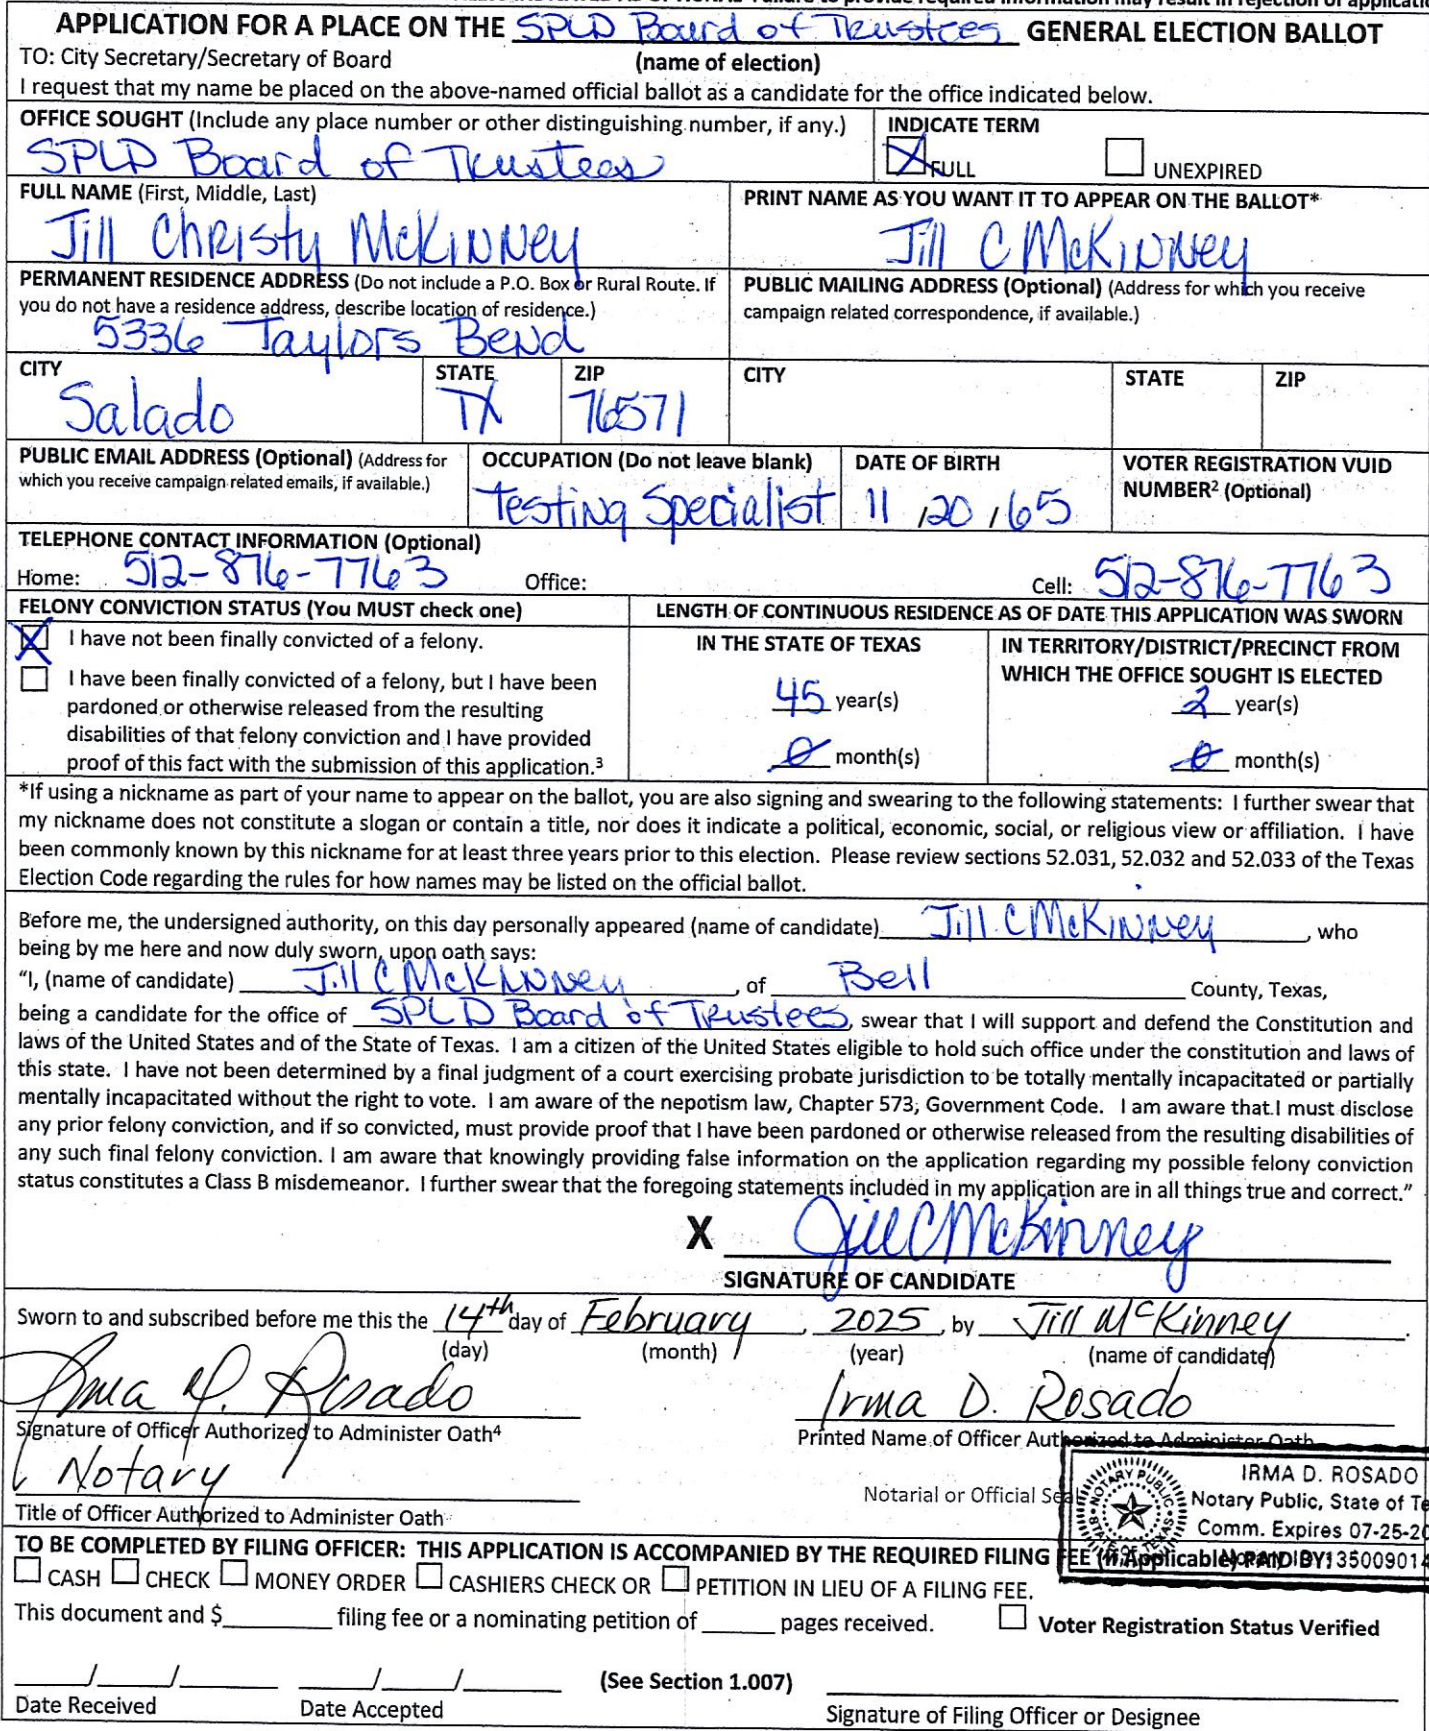 APPLICATION FOR A PLACE ON THE SPLD Board of Trustees GENERAL ELECTION BALLOT
TO: City Secretary/Secretary of Board (name of election)
I request that my name be placed on the above-named official ballot as a candidate for the office indicated below.
OFFICE SOUGHT (Include any place number or other distinguishing number, if any.) INDICATE TERM
SPLD Board of Trustees X FULL UNEXPIRED
FULL NAME (First, Middle, Last) PRINT NAME AS YOU WANT IT TO APPEAR ON THE BALLOT*
Jill Christy McKinney Jill C McKinney
PERMANENT RESIDENCE ADDRESS (Do not include a P.O. Box or Rural Route. If PUBLIC MAILING ADDRESS (Optional) (Address for which you receive
you do not have a residence address, describe location of residence.) campaign related correspondence, if available.)
5336 Taylors Bend
CITY STATE ZIP CITY STATE ZIP
Salado TX 76571
PUBLIC EMAIL ADDRESS (Optional) (Address for OCCUPATION (Do not leave blank) DATE OF BIRTH VOTER REGISTRATION VUID
which you receive campaign related emails, if available.) NUMBER² (Optional)
Testing Specialist 11 / 20 / 65
TELEPHONE CONTACT INFORMATION (Optional)
Home: 512-876-7763 Office: Cell: 512-876-7763
FELONY CONVICTION STATUS (You MUST check one) LENGTH OF CONTINUOUS RESIDENCE AS OF DATE THIS APPLICATION WAS SWORN
X I have not been finally convicted of a felony. IN THE STATE OF TEXAS IN TERRITORY/DISTRICT/PRECINCT FROM
I have been finally convicted of a felony, but I have been WHICH THE OFFICE SOUGHT IS ELECTED
pardoned or otherwise released from the resulting 45 year(s) 2 year(s)
disabilities of that felony conviction and I have provided
proof of this fact with the submission of this application.³ 0 month(s) 0 month(s)
*If using a nickname as part of your name to appear on the ballot, you are also signing and swearing to the following statements: I further swear that
my nickname does not constitute a slogan or contain a title, nor does it indicate a political, economic, social, or religious view or affiliation. I have
been commonly known by this nickname for at least three years prior to this election. Please review sections 52.031, 52.032 and 52.033 of the Texas
Election Code regarding the rules for how names may be listed on the official ballot.
Before me, the undersigned authority, on this day personally appeared (name of candidate) Jill C McKinney, who
being by me here and now duly sworn, upon oath says:
"I, (name of candidate) Jill C McKinney, of Bell County, Texas,
being a candidate for the office of SPLD Board of Trustees, swear that I will support and defend the Constitution and
laws of the United States and of the State of Texas. I am a citizen of the United States eligible to hold such office under the constitution and laws of
this state. I have not been determined by a final judgment of a court exercising probate jurisdiction to be totally mentally incapacitated or partially
mentally incapacitated without the right to vote. I am aware of the nepotism law, Chapter 573, Government Code. I am aware that I must disclose
any prior felony conviction, and if so convicted, must provide proof that I have been pardoned or otherwise released from the resulting disabilities of
any such final felony conviction. I am aware that knowingly providing false information on the application regarding my possible felony conviction
status constitutes a Class B misdemeanor. I further swear that the foregoing statements included in my application are in all things true and correct."
X Jill C McKinney
SIGNATURE OF CANDIDATE
Sworn to and subscribed before me this the 14th day of February, 2025, by Jill McKinney.
(day) (month) (year) (name of candidate)
Irma D. Rosado Irma D. Rosado
Signature of Officer Authorized to Administer Oath⁴ Printed Name of Officer Authorized to Administer Oath
Notary
Title of Officer Authorized to Administer Oath Notarial or Official Seal
NOTARY PUBLIC STATE OF TEXAS
IRMA D. ROSADO
Notary Public, State of Te
Comm. Expires 07-25-20
Notary ID 135009014
TO BE COMPLETED BY FILING OFFICER: THIS APPLICATION IS ACCOMPANIED BY THE REQUIRED FILING FEE (If Applicable) PAID BY:
CASH CHECK MONEY ORDER CASHIERS CHECK OR PETITION IN LIEU OF A FILING FEE.
This document and $ filing fee or a nominating petition of pages received. Voter Registration Status Verified
/ / / / (See Section 1.007)
Date Received Date Accepted Signature of Filing Officer or Designee